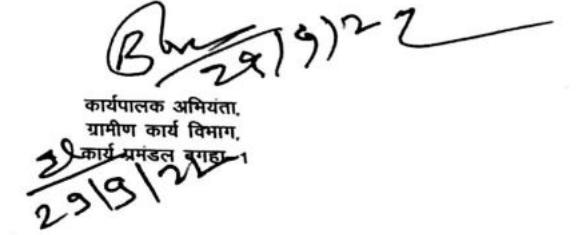 29/9/22
कार्यपालक अभियंता,
ग्रामीण कार्य विभाग,
कार्य प्रमंडल बगहा-1
29/9/22